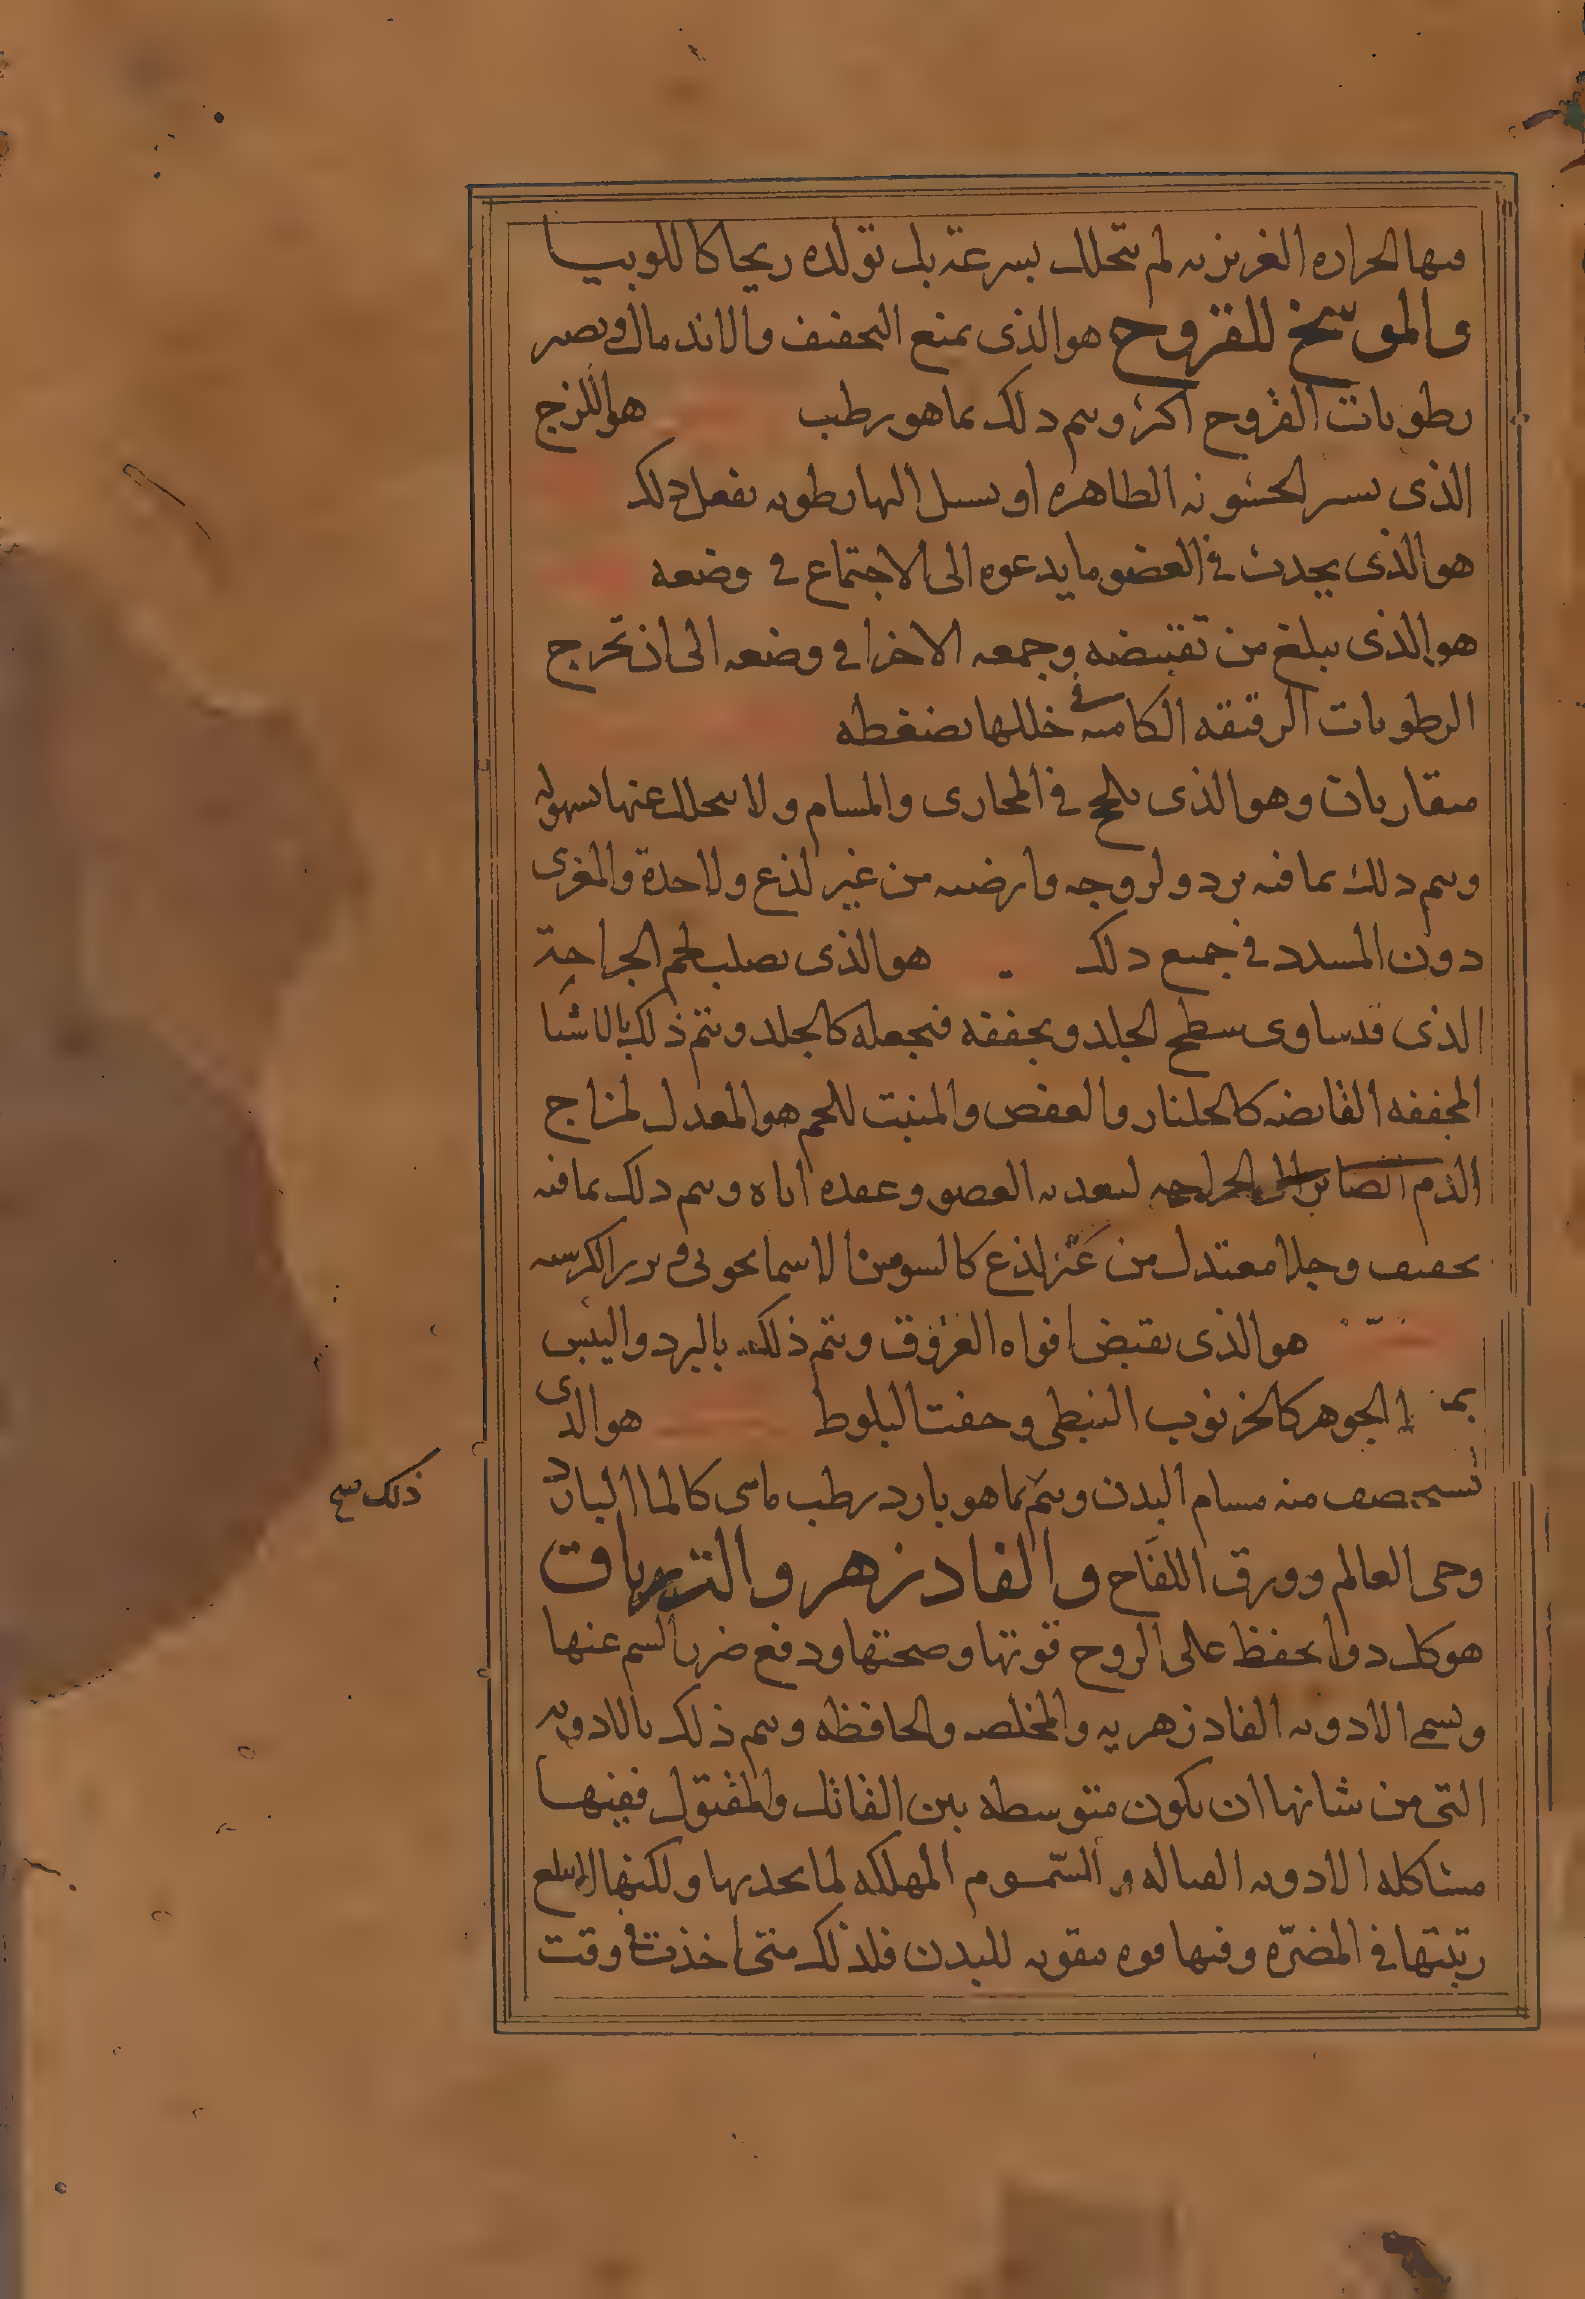 فيها الحراره الغريزيه لم تتحلل بسرعة بل تولده ريحا كاللوبيا
والموسخ للقروح هو الذى يمنع التجفيف والاندمال ويصير
رطوبات القروح اكثر ويتم ذلك بما هو رطب هو اللزج
الذى يستر الخشونه الظاهره او يسيل اليها رطوبه يفعل ذلك
هو الذى يحدث في العضو ما يدعوه الى الاجتماع في وضعه
هو الذى يبلغ من تقبيضه وجمعه الاجزا في وضعه الى ان تخرج
الرطوبات الرقيقه الكامنه في خللها بضغطه
متقاربان وهو الذى يلحج في المجارى والمسام ولا يتحلل عنها بسهوله
ويتم ذلك بما فيه برد ولزوجه وارضيه من غير لذع ولا حدة والمغرى
دون المسدد في جميع ذلك هو الذى يصلب لحم الجراحة
الذى قد ساوى سطح الجلد ويجففه فيجعله كالجلد ويتم ذلك بالاشيا
المجففه القابضه كالجلنار والعفص والمنبت للحم هو المعدل لمزاج
الدم الصائر الى الجراحه لتغذيه العضو وعقده اياه ويتم ذلك بما فيه
تجفيف وجلا معتدل من غير لذع كالسوسن الاسمانجونى وبزر الكرسنه
هو الذى يقبض افواه العروق ويتم ذلك بالبرد واليبس
الجوهر كالخرنوب النبطى وجفت البلوط هو الذى
تستحصف منه مسام البدن ويتم بما هو بارد رطب مائى كالما البارد
ذلك نسخ
وحى العالم وورق اللفاح والفادزهر والترياق
هو كل دوا يحفظ على الروح قوتها وصحتها ودفع ضرر السم عنها
وتسمى الادويه الفادزهريه والمخلصه والحافظه ويتم ذلك بالادويه
التى من شانها ان تكون متوسطه بين القاتل والمقتول ففيها
مشاكله الادويه القتاله والسموم المهلكه لما يحدبها ولكنها لا تبلغ
رتبتها في المضرّه وفيها قوه مقويه للبدن فلذلك متى اخذت في وقت